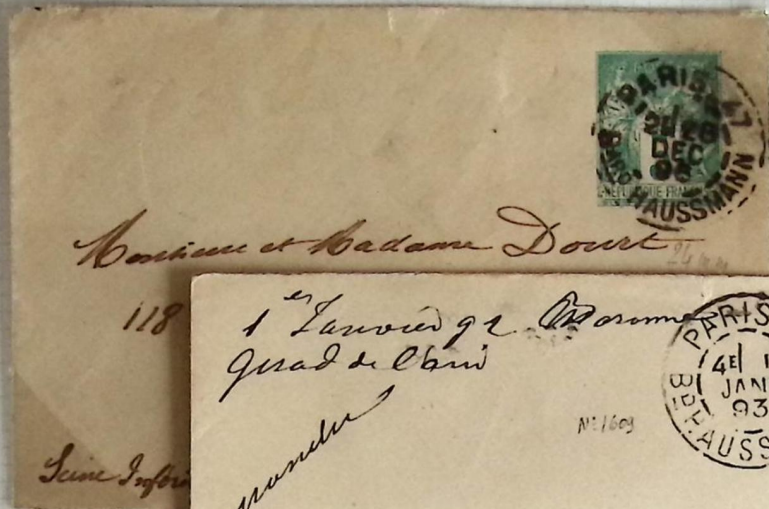 PARIS 47
2E 28
DEC
96
BD HAUSSMANN
REPUBLIQUE FRANC
Monsieur et Madame Dourt
118
Seine Inféri
1er Janvier 92 Baronne
Gérad de
N° 1609
PARIS
4E 1
JAN
93
BD HAUSS